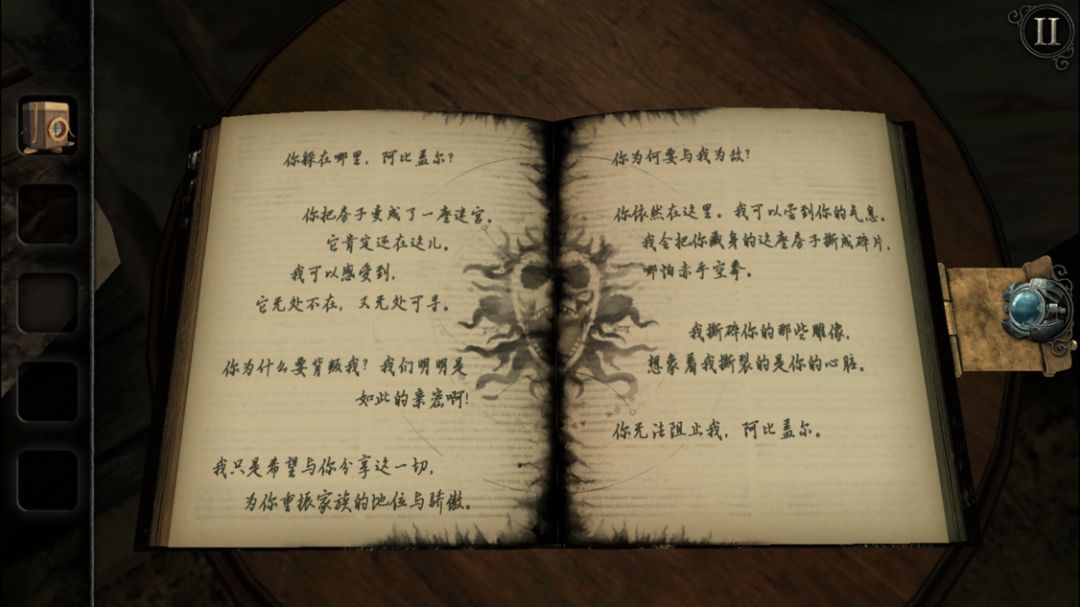 你躲在哪里，阿比盖尔？
你把房子变成了一座迷宫。
它肯定还在这儿。
我可以感受到，
它无处不在，又无处可寻。
你为什么要背叛我？我们明明是
如此的亲密啊！
我只是希望与你分享这一切，
为你重振家族的地位与骄傲。
你为何要与我为敌？
你依然在这里。我可以尝到你的气息。
我会把你藏身的这座房子撕成碎片，
哪怕赤手空拳。
我撕碎你的那些雕像，
想象着我撕裂的是你的心脏。
你无法阻止我，阿比盖尔。
II